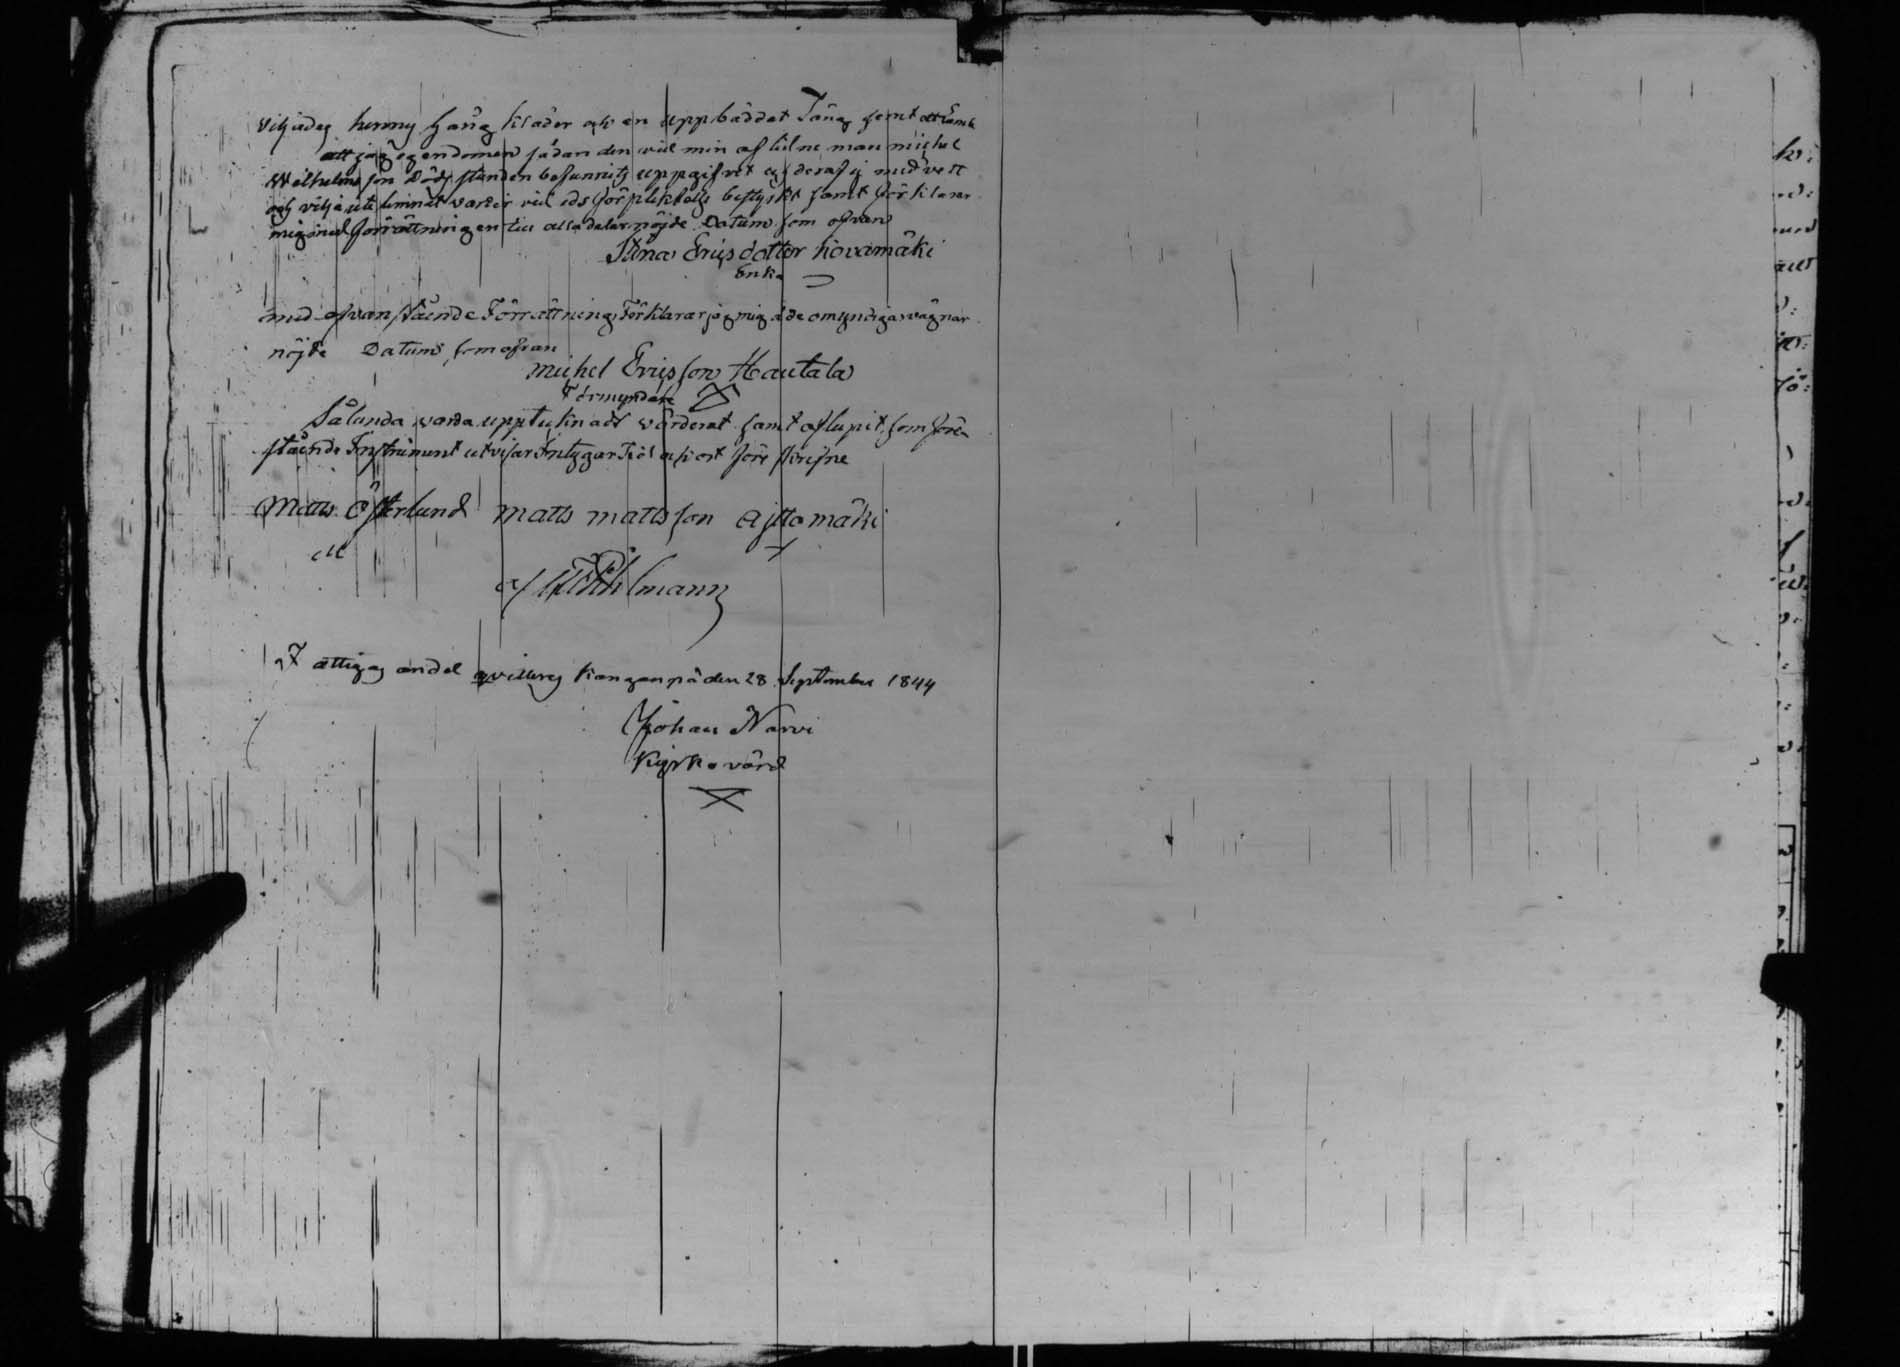 viljades henny gång kläder och en uppbäddat Säng samt
att jag egendomen sådan den vid min aflidne man michel
Wilhelms son Döds stunden befunnits uppgifvet och deraf ej med vett
och vilja ute limnat varder vid eds förpliktelse bestyrkt samt förklarar
mig med förrättningen till alla delar nöjde Datum som ofvan
Stina Erics dotter kovamäki
Enka
med ofvanstående Förrättning Förklarar jag mig å de omyndigas vägnar
nöjde Datum som ofvan
michel Ericsson Hautala
Förmyndare
Sålunda varda upptecknadt värderat samt aflupit som före
stående Instrument utvisar Intygar Tid och ort före skrifne
Matts Österlund matts mattsson ajttomäki
af
I attigas andel qvitteras Kanganpä den 28 September 1844
Johan Narvi
Kyrkovärd